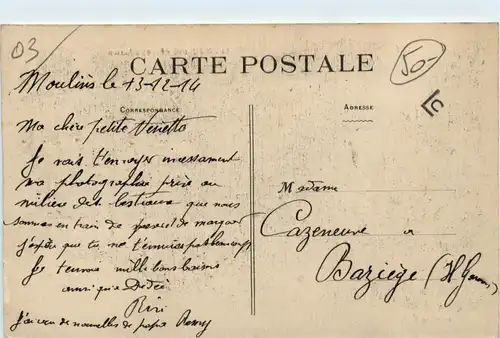 03
CARTE POSTALE
50-
Moulins le 13-12-14
CORRESPONDANCE
ADRESSE
Ma chère petite
Je vais t'envoyer incessament
ma photographie prise au
milieu des bestiaux que nous
sommes en train de
j'espère que tu ne t'ennuies pas beaucoup
Je t'envoie mille bons baisers
ainsi qu'a Dédée
Riri
J'ai eu de nouvelles de papa
Madame
Cazeneuve a
Baziège (H Garonne)